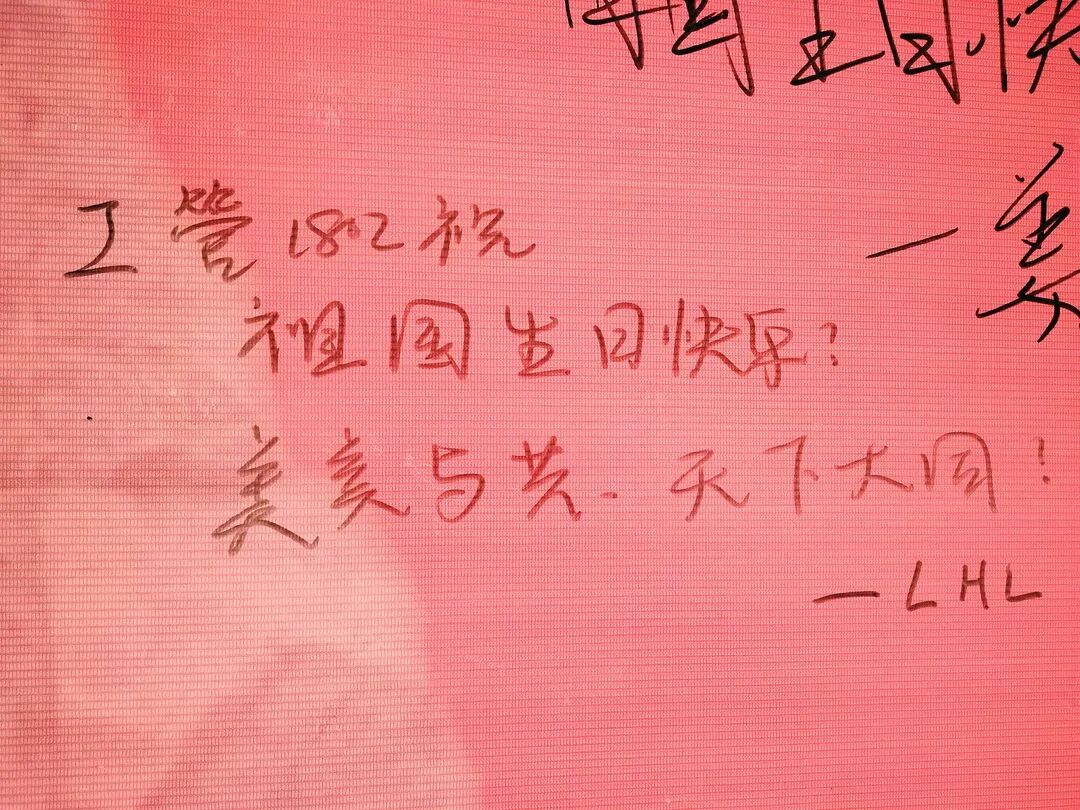 国生日快
工管1802祝
祖国生日快乐!
美美与共、天下大同!
—LHL